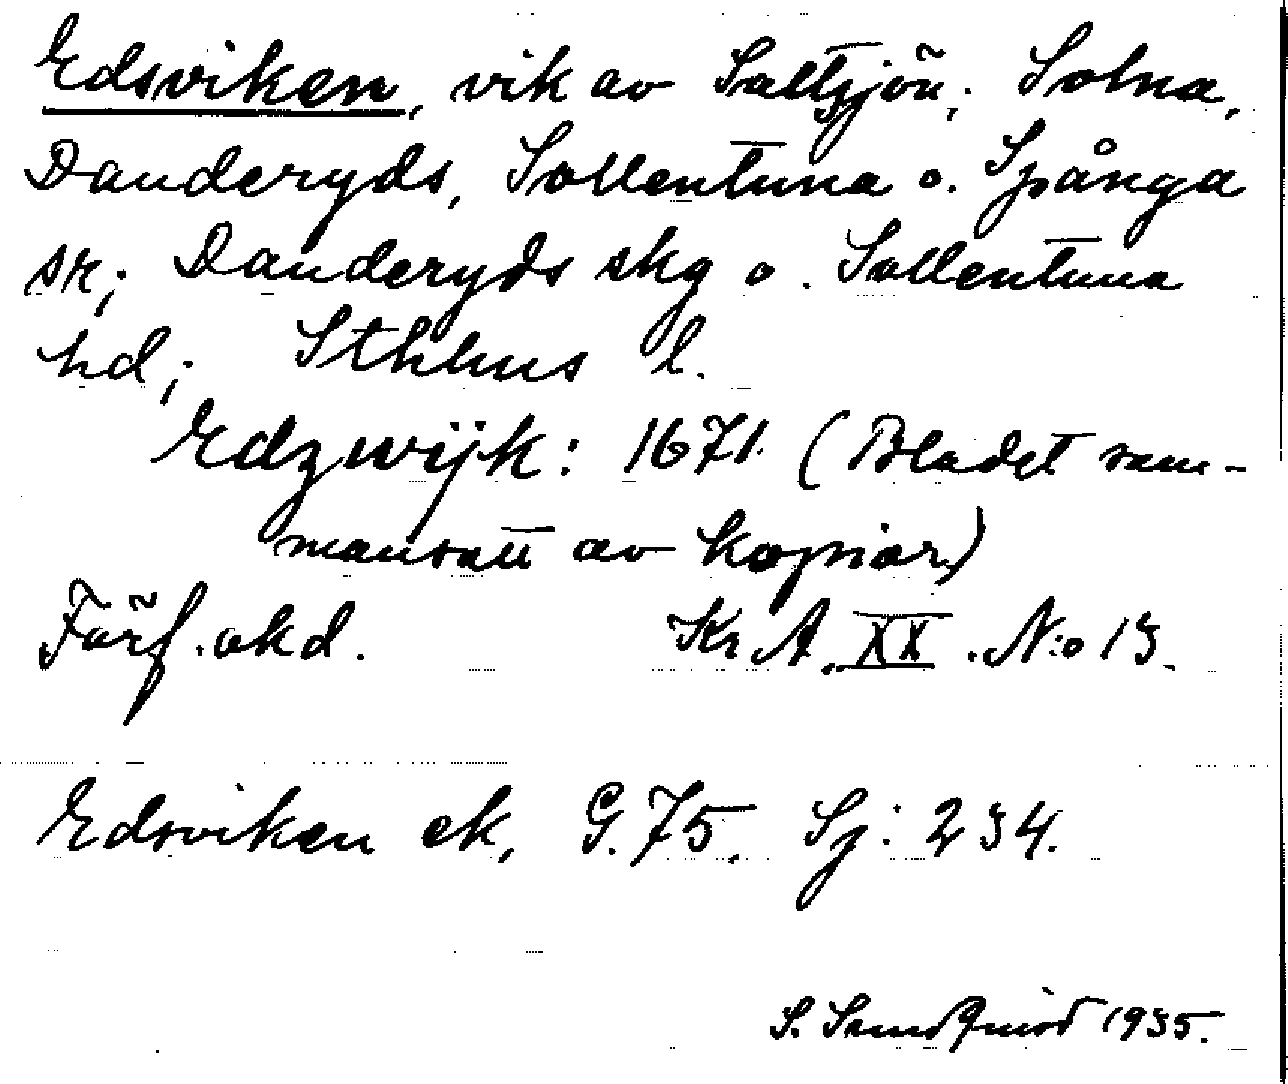 Edsviken, vik av Saltsjön; Solna,
Danderyds, Sollentuna o. Spånga
sr; Danderyds skg o. Sollentuna
hd; Sthlms l.
Edzwijk: 1671. (Bladet sam-
mansatt av kopior)
Förf. okd. Kr. A. XX. No 13.
Edsviken ek, G. 75. Sj: 234.
S. Sundqvist 1935.